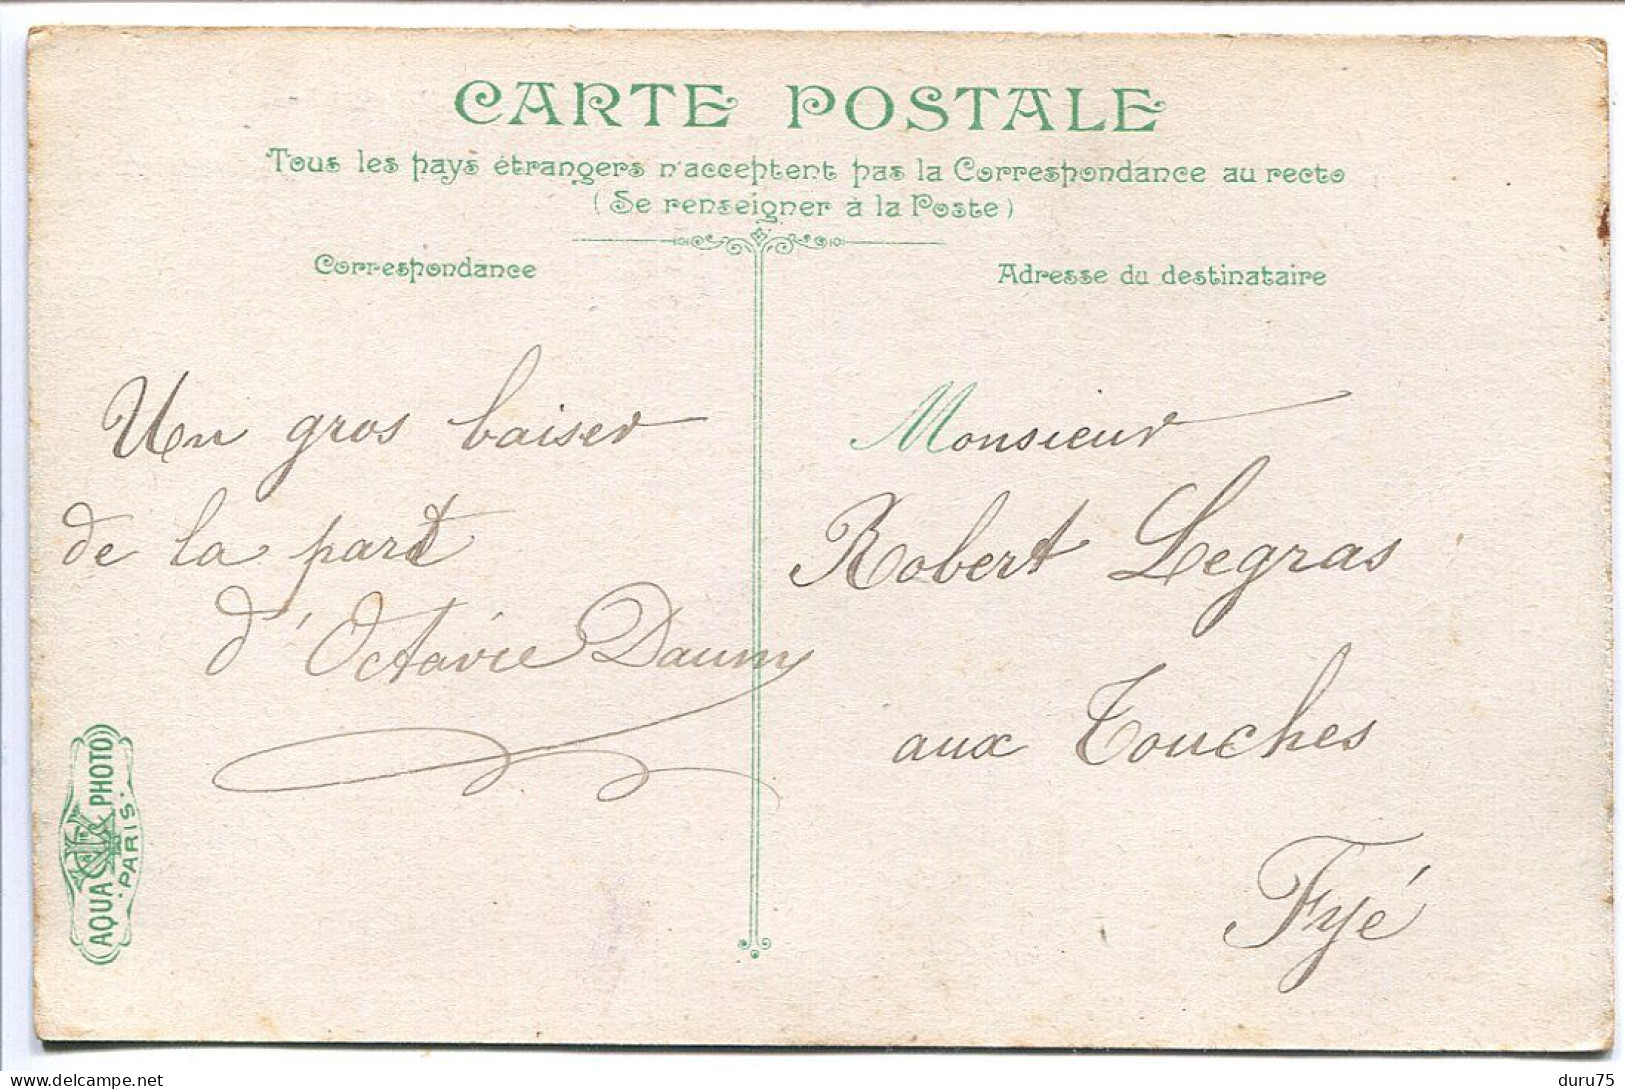 CARTE POSTALE
Tous les pays étrangers n'acceptent pas la Correspondance au recto
(Se renseigner à la Poste)
Correspondance
Adresse du destinataire
Un gros baiser
de la part
d'Octavie Daum
Monsieur
Robert Legras
aux Touches
Fyé
AQUA PHOTO
PARIS
delcampe.net
duru75